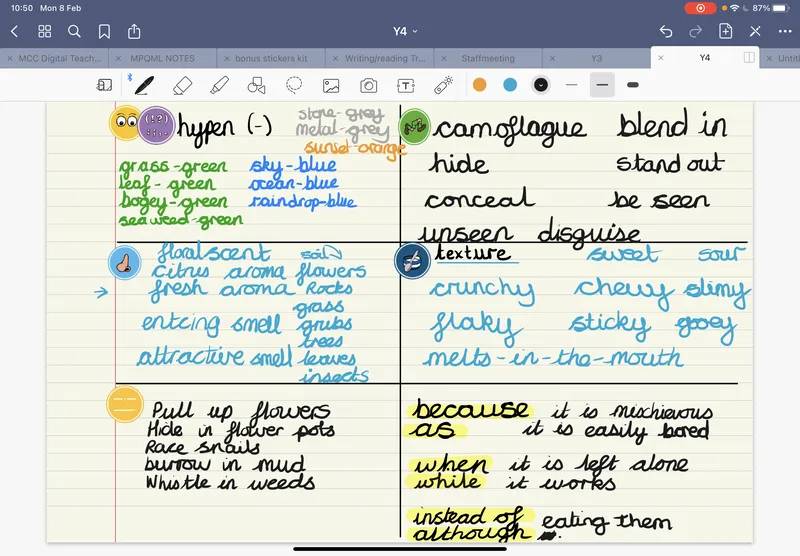 10:50 Mon 8 Feb
87%
Y4
MCC Digital Teach...
MPQML NOTES
bonus stickers kit
Writing/reading Tr...
Staffmeeting
Y3
Y4
Untit
hypen (-)
stone-grey
metal-grey
sunset-orange
grass-green sky-blue
leaf-green ocean-blue
bogey-green raindrop-blue
seaweed-green
camoflague blend in
hide stand out
conceal be seen
unseen disguise
floral scent soil
citrus aroma flowers
fresh aroma Rocks
grass
entcing smell grubs
trees
attractive smell leaves
insects
texture sweet sour
crunchy chewy slimy
flaky sticky gooey
melts-in-the-mouth
Pull up flowers
Hide in flower pots
Race snails
burrow in mud
Whistle in weeds
because it is mischievous
as it is easily bored
when it is left alone
while it works
instead of eating them
although